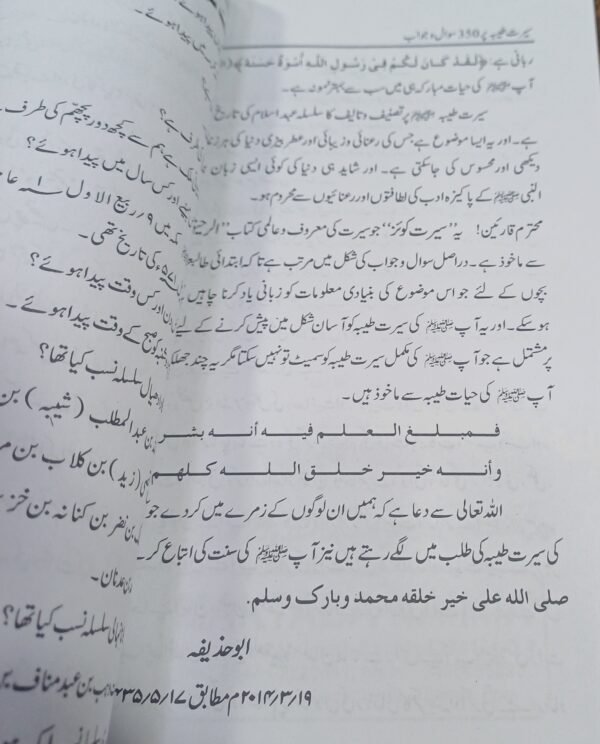 سیرت طیبہ پر 350 سوال و جواب
ربانی ہے: ﴿لَقَدْ كَانَ لَكُمْ فِي رَسُولِ اللَّهِ أُسْوَةٌ حَسَنَةٌ﴾
آپ ﷺ کی حیات مبارکہ ہی میں سب سے بہتر نمونہ ہے۔
سیرت طیبہ ﷺ پر تصنیف و تالیف کا سلسلہ عہد اسلام کی تاریخ
ہے۔ اور یہ ایسا موضوع ہے جس کی رعنائی و زیبائی اور عطر بیزی دنیا کی ہر زبان
دیکھی اور محسوس کی جاسکتی ہے۔ اور شاید ہی دنیا کی کوئی ایسی زبان
النبی ﷺ کے پاکیزہ ادب کی لطافتوں اور رعنائیوں سے محروم ہو۔
محترم قارئین! یہ "سیرت کوئز" جو سیرت کی معروف و عالمی کتاب "الرحیق
سے ماخوذ ہے۔ دراصل سوال و جواب کی شکل میں مرتب ہے تاکہ ابتدائی
بچوں کے لئے جو اس موضوع کی بنیادی معلومات کو زبانی یاد کرنا چاہیں
ہوسکے۔ اور یہ آپ ﷺ کی سیرت طیبہ کو آسان شکل میں پیش کرنے کے لیے
پر مشتمل ہے جو آپ ﷺ کی مکمل سیرت طیبہ کو سمیٹ تو نہیں سکتا مگر یہ چند جھلک
آپ ﷺ کی حیات طیبہ سے ماخوذ ہیں۔
فمبلغ العلم فيه أنه بشر
وأنه خير خلق الله كلهم
اللہ تعالی سے دعا ہے کہ ہمیں ان لوگوں کے زمرے میں کردے جو
کی سیرت طیبہ کی طلب میں لگے رہتے ہیں نیز آپ ﷺ کی سنت کی اتباع کر
صلى الله على خير خلقه محمد وبارك وسلم.
ابو حذیفہ
۲۰۱۴/۳/۱۹م مطابق ۱۷/۵/
پیدا ہوئے۔
ہے ہم سے کچھ دور پچھم کی طرف۔
اور کس سال میں پیدا ہوئے؟
میں ۹/ ربیع الاول ۱
۵۷۱ء کی تاریخ تھی۔
اور کس وقت پیدا ہوئے؟
صبح کے وقت پیدا ہوئے۔
سلسلہ نسب کیا تھا؟
بن عبدالمطلب (شیبہ) بن
(زید) بن کلاب بن
بن نضر بن کنانہ بن
عدنان۔
سلسلہ نسب کیا تھا؟
بن عبد مناف